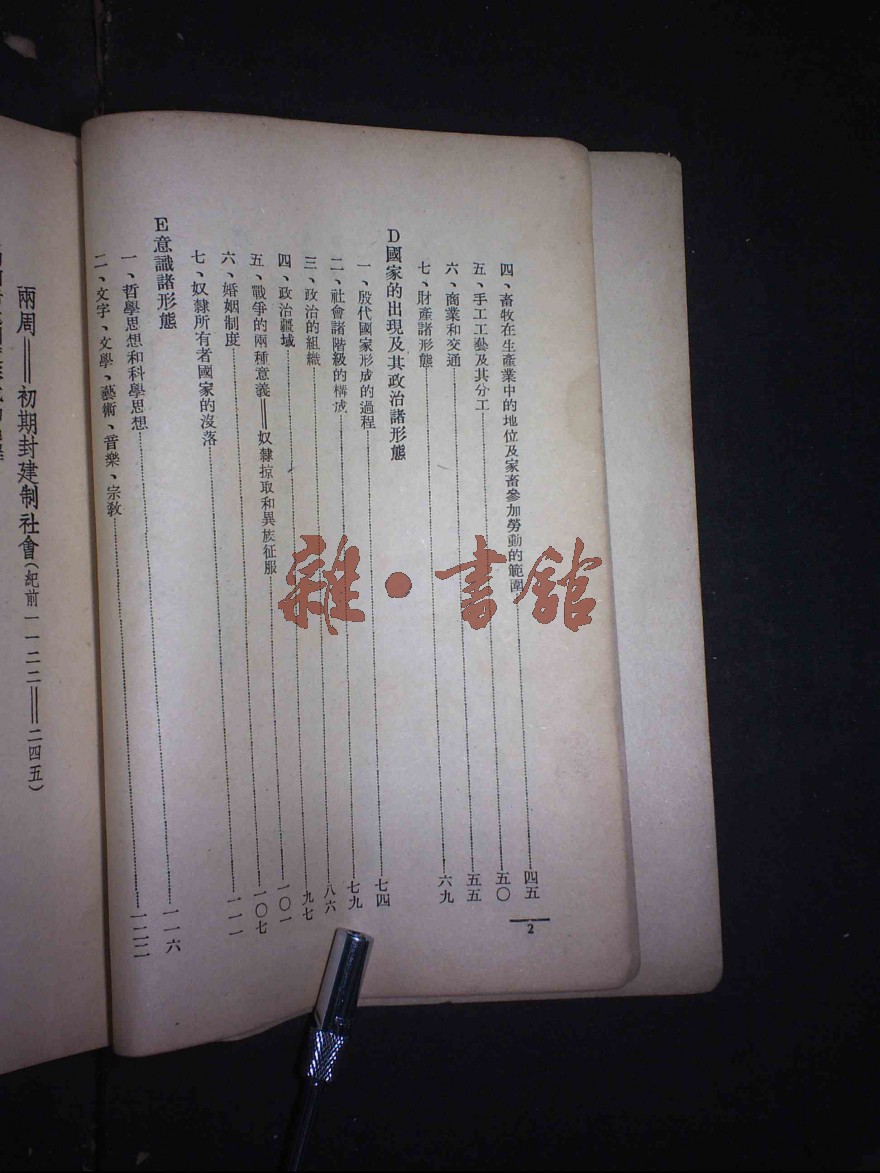 2
四、畜牧在生產業中的地位及家畜參加勞動的範圍……四五
五、手工工藝及其分工……五〇
六、商業和交通……五五
七、財產諸形態……六九
D國家的出現及其政治諸形態
一、殷代國家形成的過程……七四
二、社會諸階級的構成……七九
三、政治的組織……八六
四、政治疆域……九七
五、戰爭的兩種意義——奴隸掠取和異族征服……一〇一
六、婚姻制度……一〇七
七、奴隸所有者國家的沒落……一一一
E意識諸形態
一、哲學思想和科學思想……一一六
二、文字、文學、藝術、音樂、宗教……一二二
兩周——初期封建制社會(紀前一一二二——二四五)
雜·書館